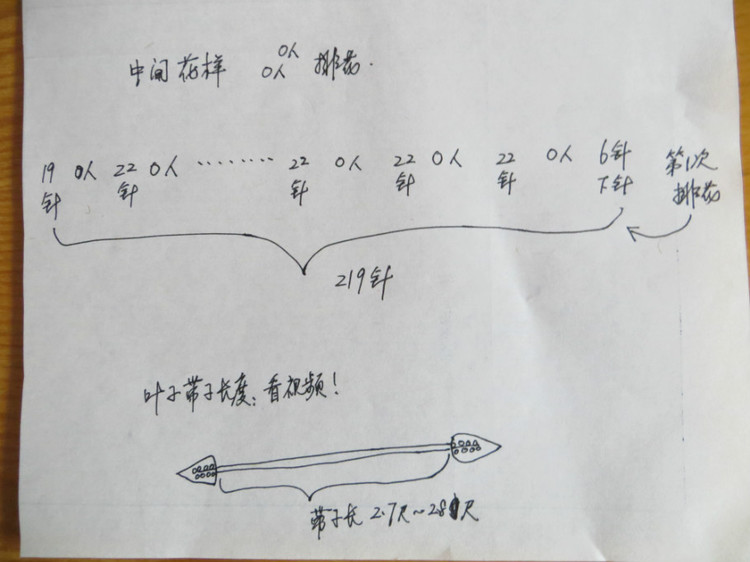 中间花样 0人 0人 排花.
19针 0人 22针 0人 ········ 22针 0人 22针 0人 22针 0人 6针下针 第1次排花
219针
叶子带子长度:看视频!
带子长 2.7尺~2.8尺